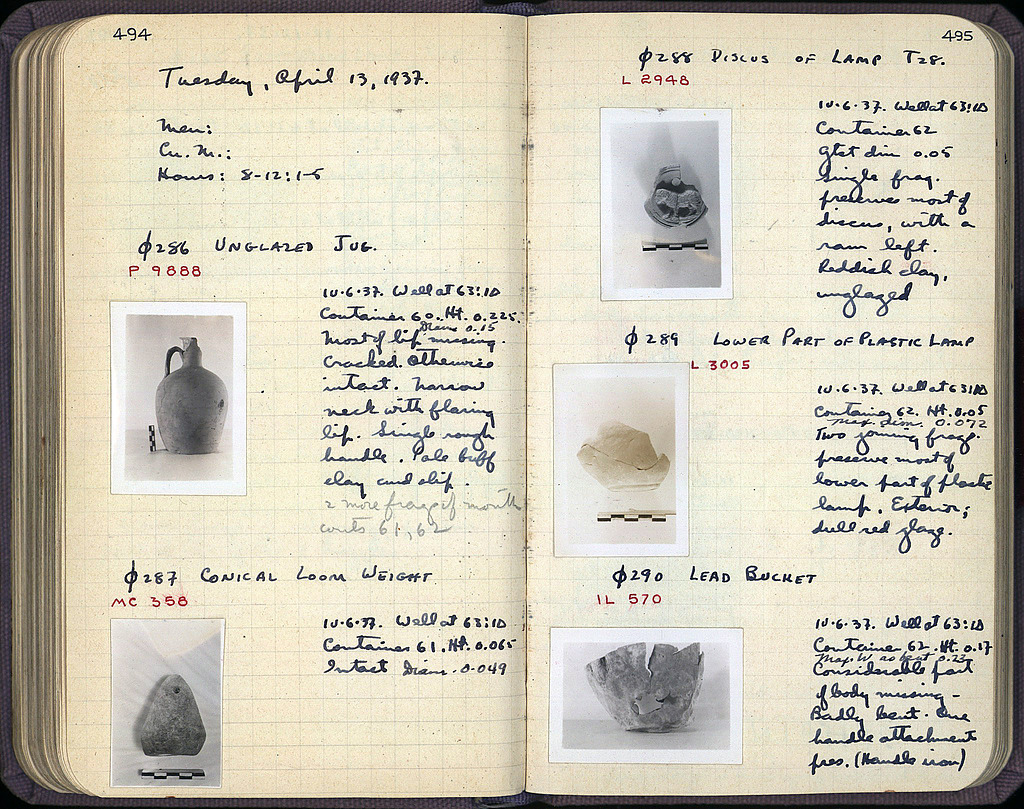 494
Tuesday, April 13, 1937.
Men:
Cu. M.:
Hours: 8-12; 1-5
ϕ286 UNGLAZED JUG.
P 9888
10.6.37. Well at 63:ΙΔ
Container 60. Ht. 0.225.
Diam 0.15
Most of lip missing.
Cracked. Otherwise
intact. Narrow
neck with flaring
lip. Single rough
handle. Pale buff
clay and slip.
2 more frags of mouth
conts 61, 62
ϕ287 CONICAL LOOM WEIGHT
MC 358
10.6.37. Well at 63:ΙΔ
Container 61. Ht. 0.065
Intact Diam. 0.049
495
ϕ288 DISCUS OF LAMP T28.
L 2948
10.6.37. Well at 63:ΙΔ
Container 62
gtst dim 0.05
Single frag.
preserves most of
discus, with a
ram left.
Reddish clay,
unglazed
ϕ289 LOWER PART OF PLASTIC LAMP
L 3005
10.6.37. Well at 63:ΙΔ
Container 62. Ht. 0.05
Max. dim. 0.072
Two joining frags.
preserve most of
lower part of plastic
lamp. Exterior;
dull red glaze.
ϕ290 LEAD BUCKET
IL 570
10.6.37. Well at 63:ΙΔ
Container 62. Ht. 0.17
Max. W. as bent 0.23
Considerable part
of body missing –
Badly bent. One
handle attachment
pres. (Handle iron)